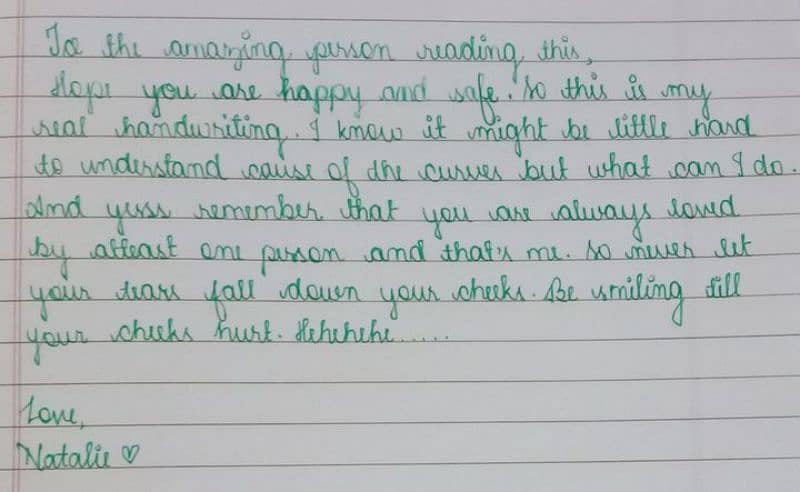 To the amazing person reading this,
Hope you are happy and safe. So this is my
real handwriting. I know it might be little hard
to understand cause of the curves but what can I do.
And yess remember that you are always loved
by atleast one person and that's me. So never let
your tears fall down your cheeks. Be smiling till
your cheeks hurt. Hehehehe.....
Love,
Natalie ♡